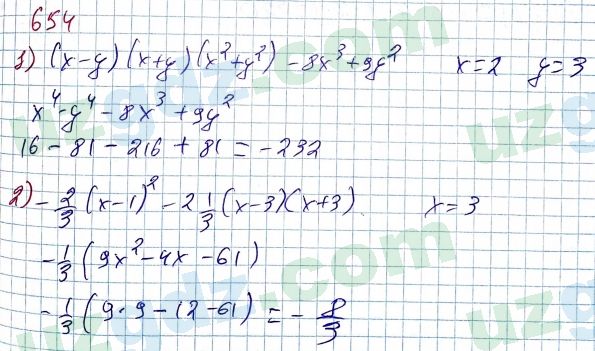 654
1) (x-y)(x+y)(x²+y²) - 8x³+9y² x=2 y=3
x⁴-y⁴-8x³+9y²
16-81-216+81=-232
2) -2/3(x-1)²-2 1/3(x-3)(x+3) x=3
-1/3(9x²-4x-61)
-1/3(9·9-12-61)=-8/3